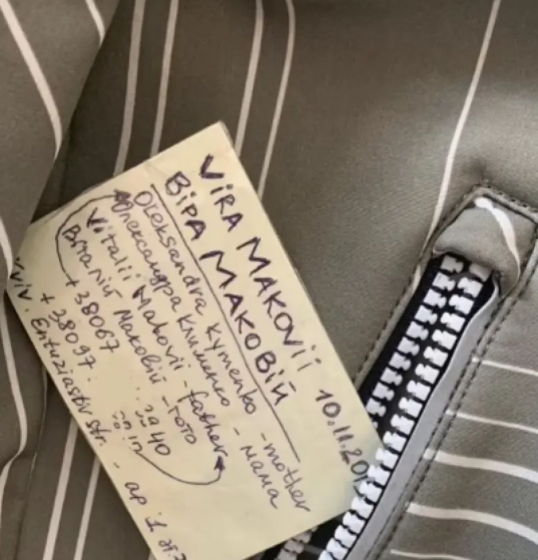 VIRA MAKOVII 10.11.20
ВІРА МАКОВІЙ
Oleksandra Kymenko - mother
Олександра Клименко - мама
Vitalii Makovii - father
Віталій Маковій - тато
+38067
+38097
Entuziastiv str.